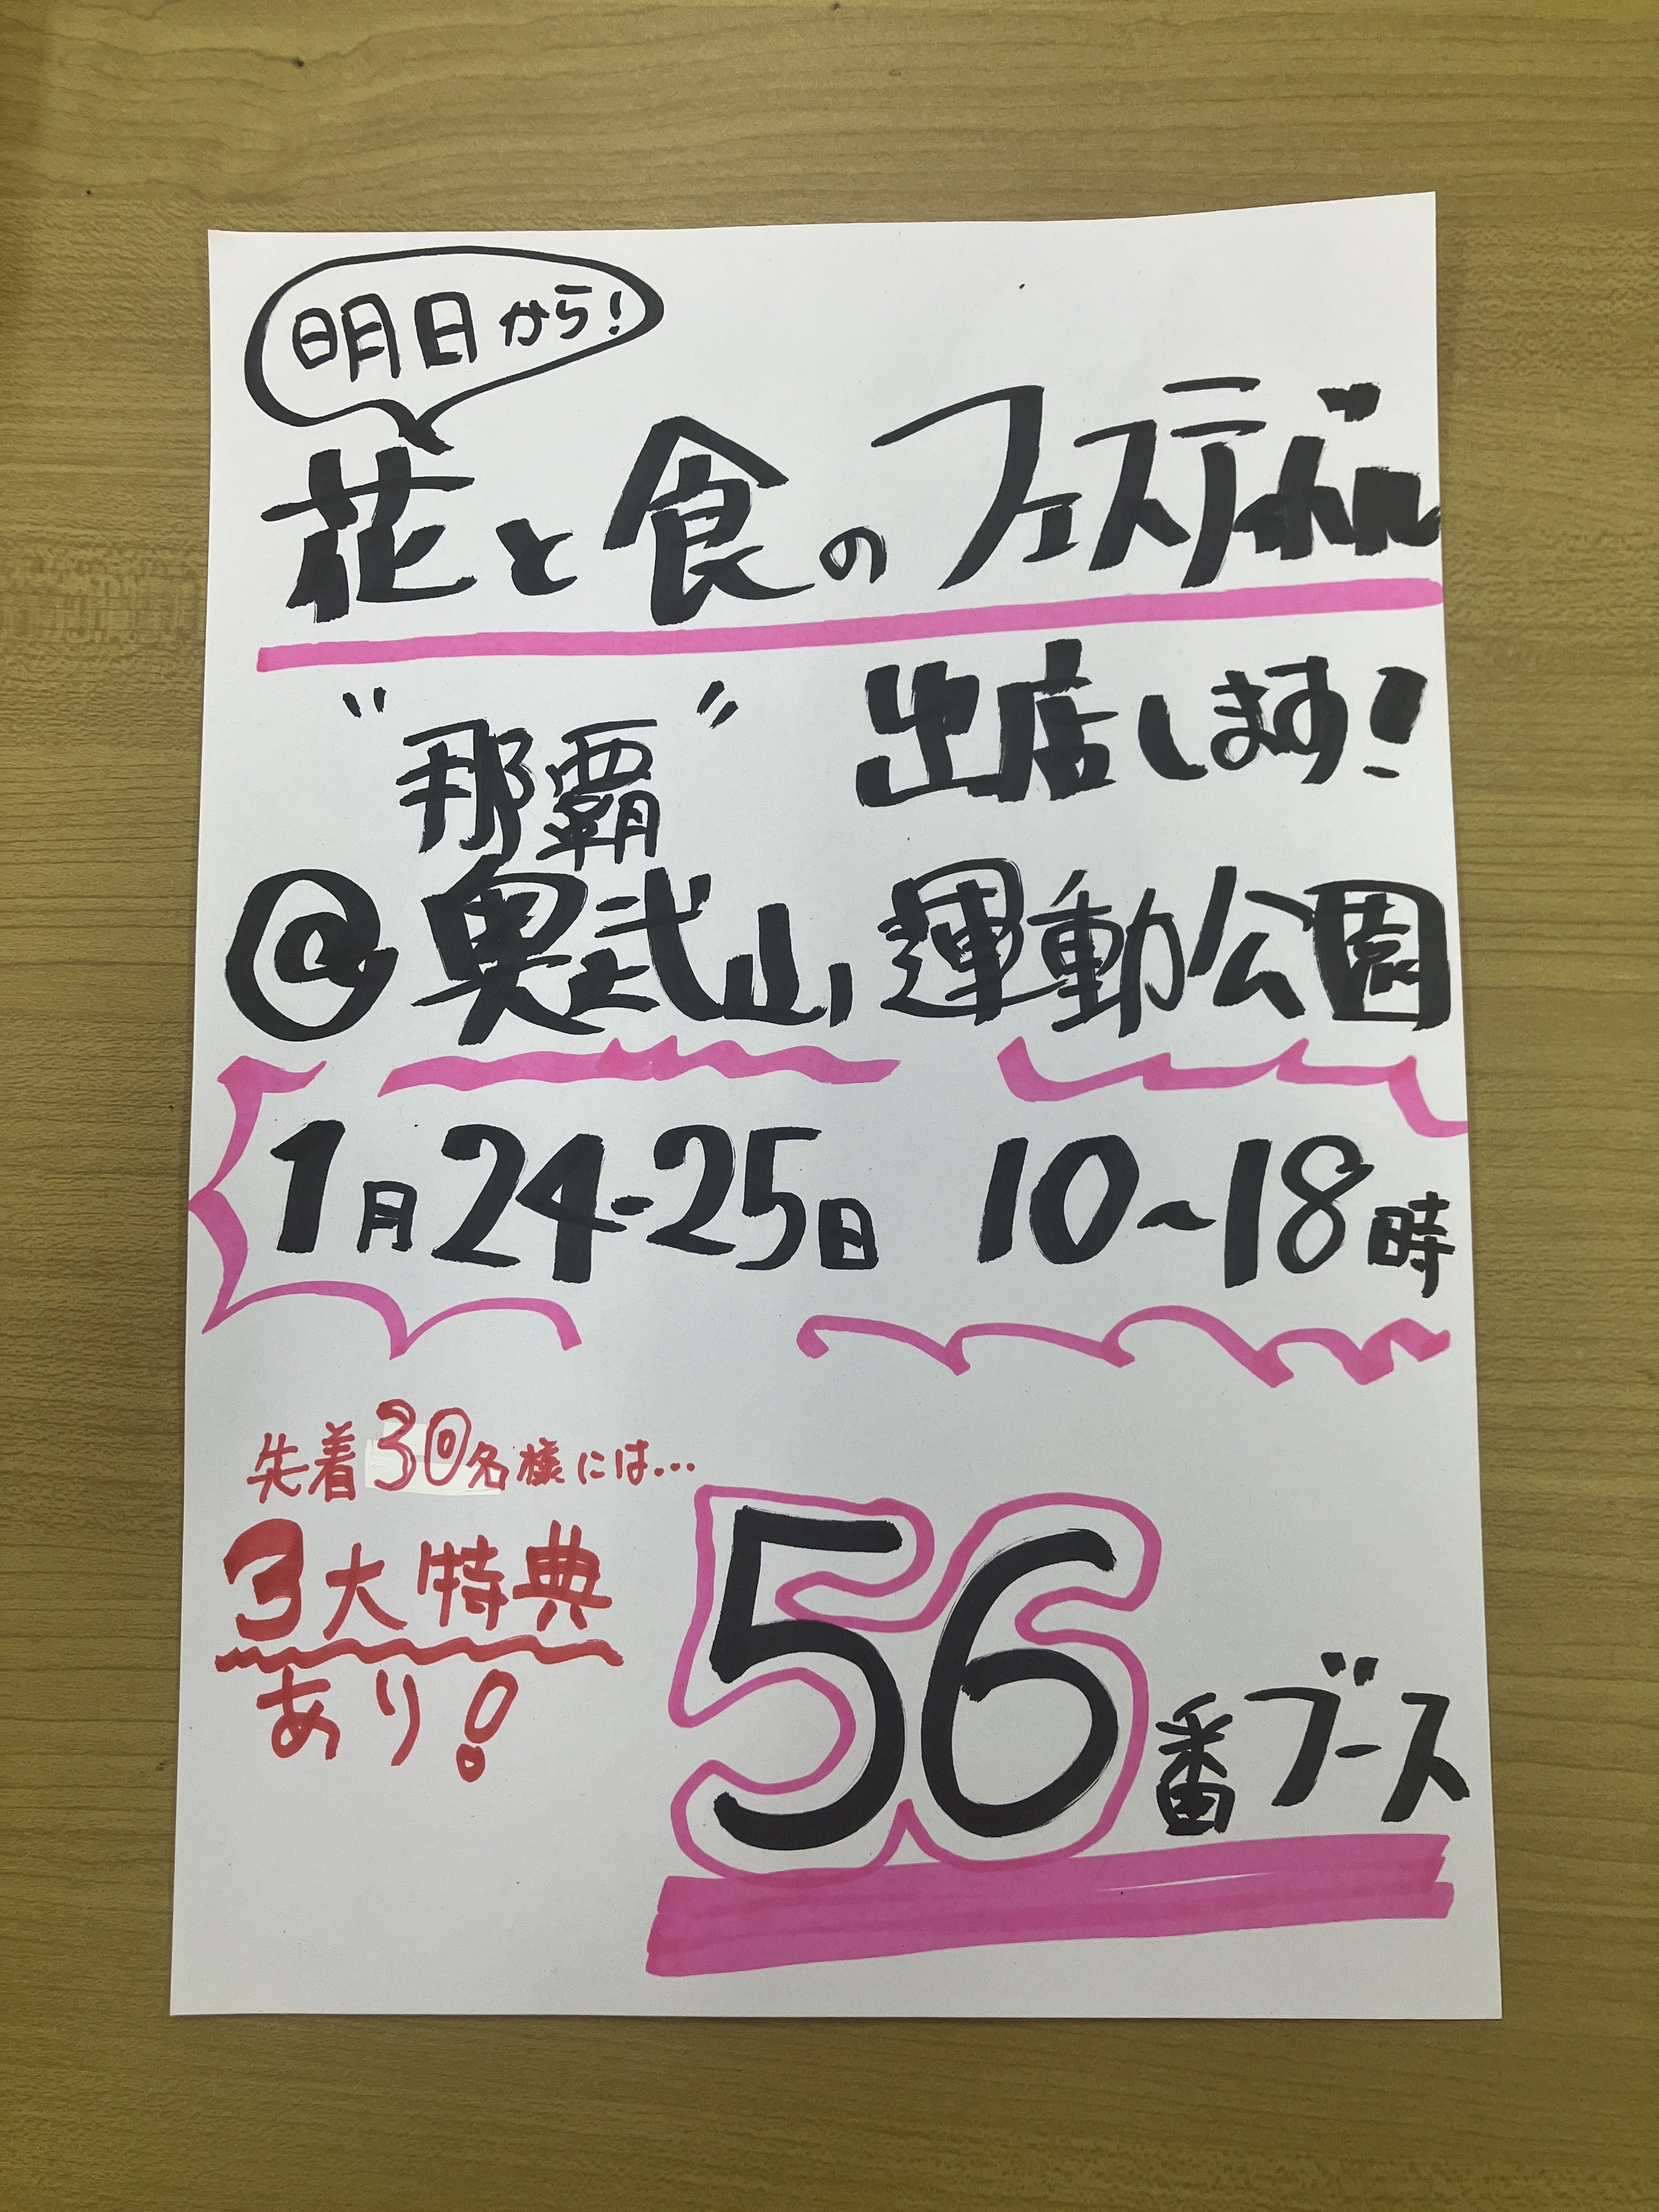 明日から!
花と食のフェスティバル
出店します!
"那覇"
@奥武山運動公園
1月24-25日 10~18時
先着30名様には…
3大特典
あり!
56番ブース